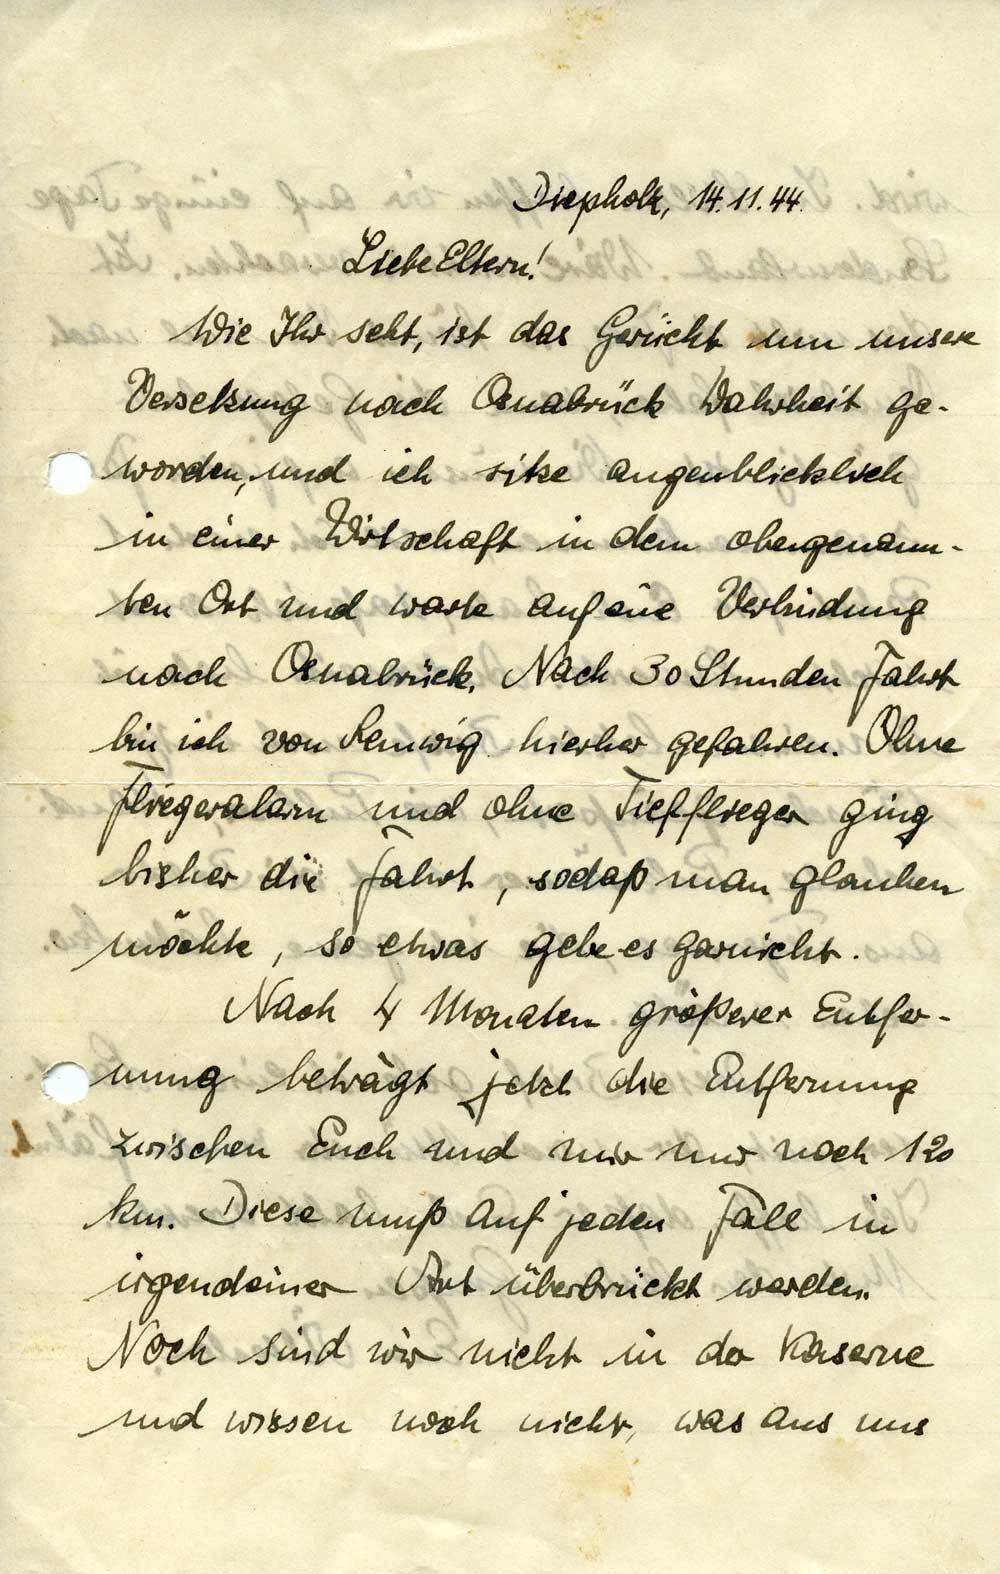 Diepholz, 14.11.44.
Liebe Eltern!
Wie Ihr seht, ist das Gerücht um unsere
Versetzung nach Osnabrück Wahrheit ge-
worden, und ich sitze augenblicklich
in einer Wirtschaft in dem obengenann-
ten Ort und warte auf eine Verbindung
nach Osnabrück. Nach 30 Stunden Fahrt
bin ich von hierher gefahren. Ohne
Fliegeralarm und ohne Tiefflieger ging
bisher die Fahrt, sodaß man glauben
möchte, so etwas gebe es garnicht.
Nach 4 Monaten größerer Entfer-
nung beträgt jetzt die Entfernung
zwischen Euch und mir nur noch 120
km. Diese muß auf jeden Fall in
irgendeiner Art überbrückt werden.
Noch sind wir nicht in der Kaserne
und wissen noch nicht, was aus uns